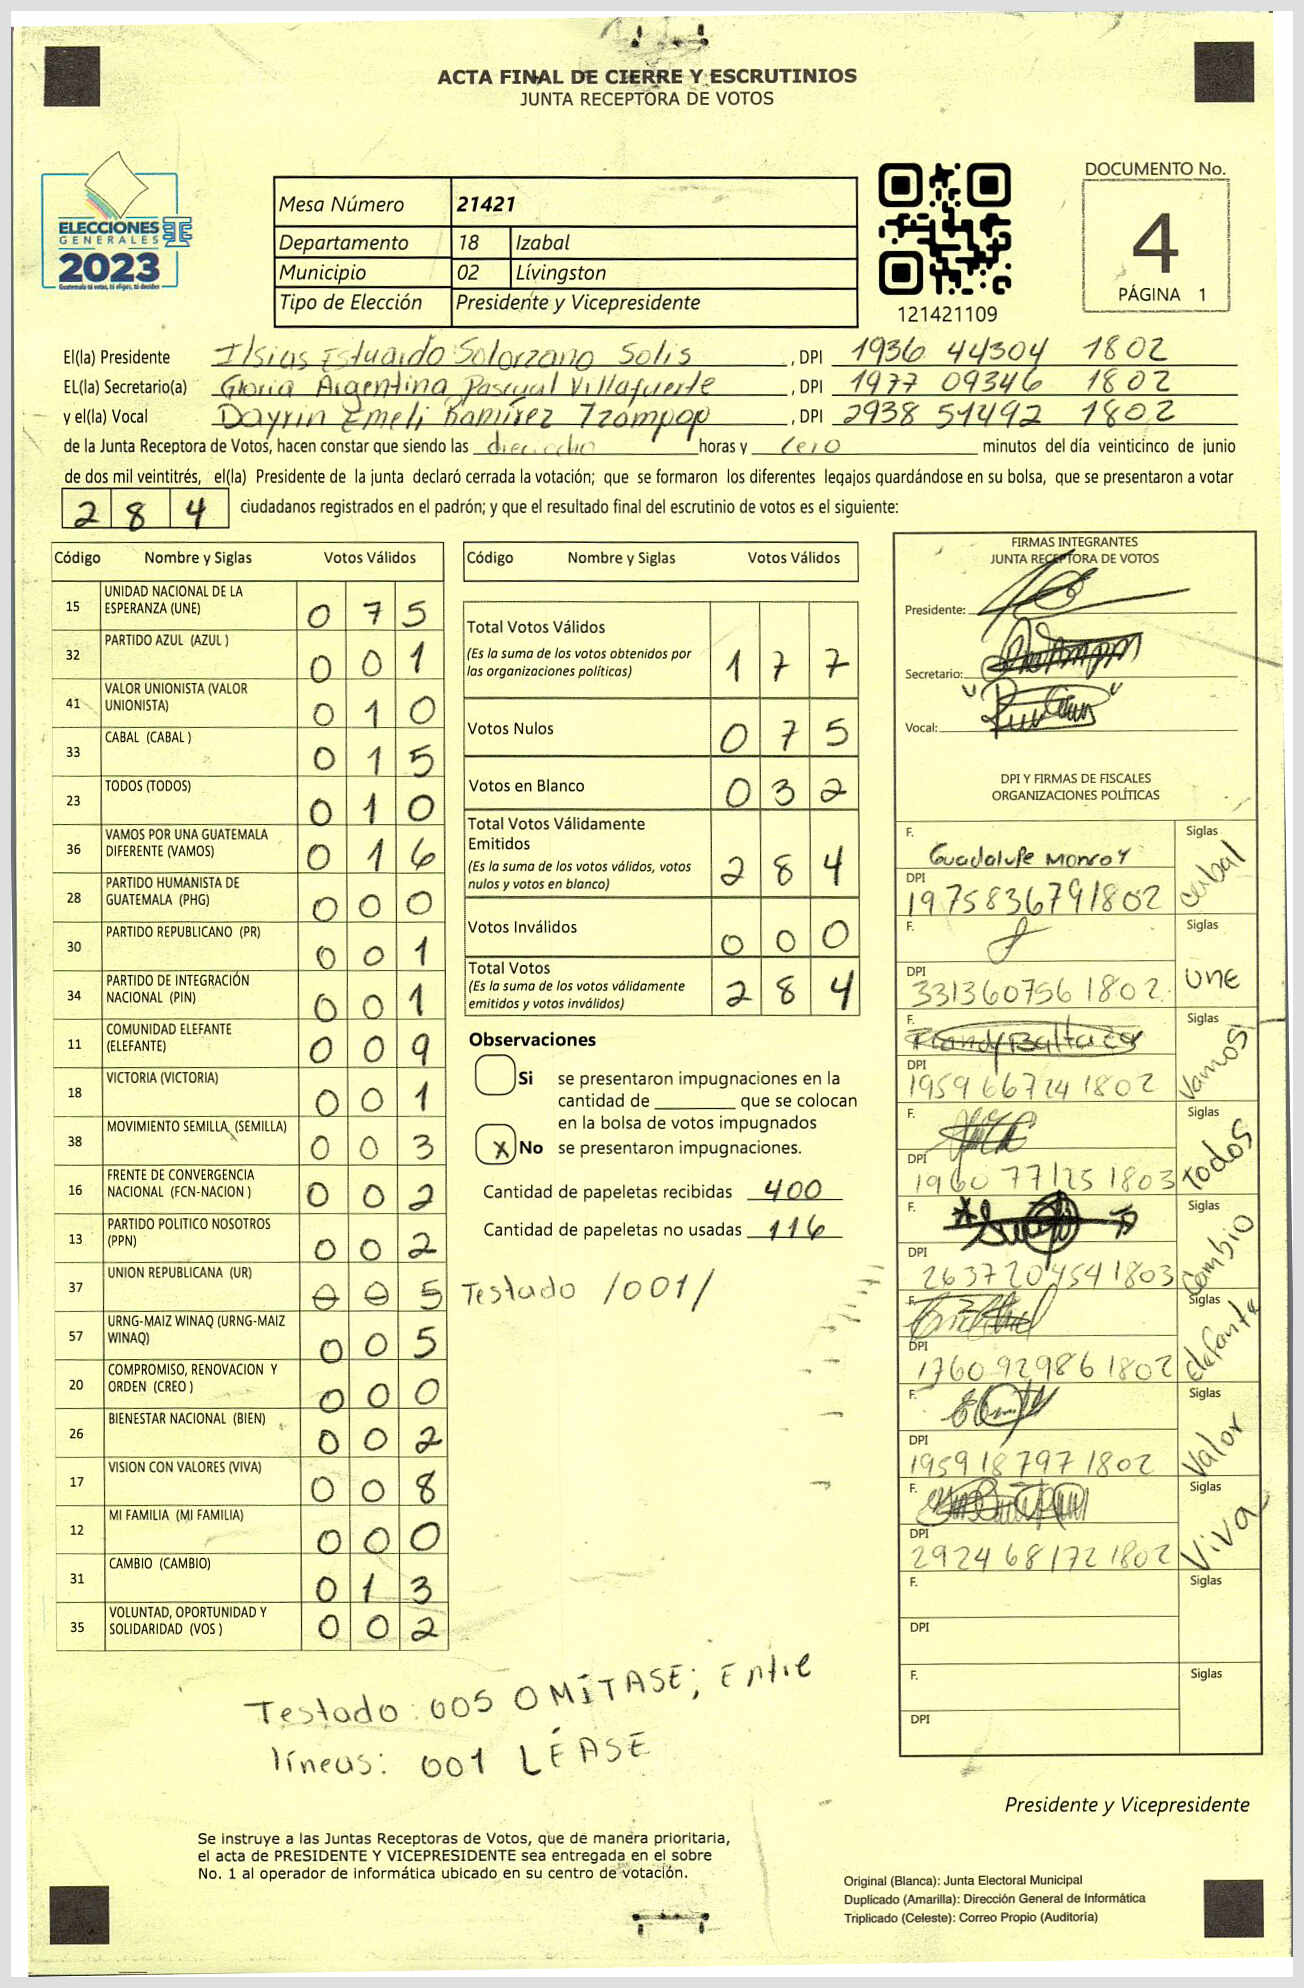 ACTA FINAL DE CIERRE Y ESCRUTINIOS
JUNTA RECEPTORA DE VOTOS
ELECCIONES
GENERALES
2023
Guatemala tú votas, tú eliges, tú decides
Mesa Número 21421
Departamento 18 Izabal
Municipio 02 Lívingston
Tipo de Elección Presidente y Vicepresidente
121421109
DOCUMENTO No.
4
PÁGINA 1
El(la) Presidente Ilsias Estuardo Solorzano Solis , DPI 1936 44304 1802
EL(la) Secretario(a) Gloria Argentina Pascual Villafuerte , DPI 1977 09346 1802
y el(la) Vocal Dayrin Emeli Ramírez Tzompop , DPI 2938 51492 1802
de la Junta Receptora de Votos, hacen constar que siendo las dieciocho horas y cero minutos del día veinticinco de junio
de dos mil veintitrés, el(la) Presidente de la junta declaró cerrada la votación; que se formaron los diferentes legajos guardándose en su bolsa, que se presentaron a votar
284 ciudadanos registrados en el padrón; y que el resultado final del escrutinio de votos es el siguiente:
Código Nombre y Siglas Votos Válidos
15 UNIDAD NACIONAL DE LA ESPERANZA (UNE) 075
32 PARTIDO AZUL (AZUL ) 001
41 VALOR UNIONISTA (VALOR UNIONISTA) 010
33 CABAL (CABAL ) 015
23 TODOS (TODOS) 010
36 VAMOS POR UNA GUATEMALA DIFERENTE (VAMOS) 016
28 PARTIDO HUMANISTA DE GUATEMALA (PHG) 000
30 PARTIDO REPUBLICANO (PR) 001
34 PARTIDO DE INTEGRACIÓN NACIONAL (PIN) 001
11 COMUNIDAD ELEFANTE (ELEFANTE) 009
18 VICTORIA (VICTORIA) 001
38 MOVIMIENTO SEMILLA (SEMILLA) 003
16 FRENTE DE CONVERGENCIA NACIONAL (FCN-NACION ) 002
13 PARTIDO POLITICO NOSOTROS (PPN) 002
37 UNION REPUBLICANA (UR) 005 Testado /001/
57 URNG-MAIZ WINAQ (URNG-MAIZ WINAQ) 005
20 COMPROMISO, RENOVACION Y ORDEN (CREO ) 000
26 BIENESTAR NACIONAL (BIEN) 002
17 VISION CON VALORES (VIVA) 008
12 MI FAMILIA (MI FAMILIA) 000
31 CAMBIO (CAMBIO) 013
35 VOLUNTAD, OPORTUNIDAD Y SOLIDARIDAD (VOS ) 002
Código Nombre y Siglas Votos Válidos
Total Votos Válidos 177
(Es la suma de los votos obtenidos por
las organizaciones políticas)
Votos Nulos 075
Votos en Blanco 032
Total Votos Válidamente
Emitidos 284
(Es la suma de los votos válidos, votos
nulos y votos en blanco)
Votos Inválidos 000
Total Votos 284
(Es la suma de los votos válidamente
emitidos y votos inválidos)
Observaciones
Si se presentaron impugnaciones en la
cantidad de ________ que se colocan
en la bolsa de votos impugnados
X No se presentaron impugnaciones.
Cantidad de papeletas recibidas 400
Cantidad de papeletas no usadas 116
FIRMAS INTEGRANTES
JUNTA RECEPTORA DE VOTOS
Presidente:
Secretario:
Vocal:
DPI Y FIRMAS DE FISCALES
ORGANIZACIONES POLÍTICAS
F. Guadalupe Monroy Siglas Cabal
DPI 1975836791802
F. Siglas UNE
DPI 3313607561802
F. Randy Baltazar Siglas Vamos
DPI 1959667241802
F. Siglas Todos
DPI 1960771251803
F. Siglas Cambio
DPI 2637204541803
F. Siglas elefante
DPI 1760929861802
F. Siglas Valor
DPI 1959187971802
F. Siglas Viva
DPI 2924681721802
F. Siglas
DPI
F. Siglas
DPI
Testado: 005 OMÍTASE; Entre
líneas: 001 LÉASE
Presidente y Vicepresidente
Se instruye a las Juntas Receptoras de Votos, que de manera prioritaria,
el acta de PRESIDENTE Y VICEPRESIDENTE sea entregada en el sobre
No. 1 al operador de informática ubicado en su centro de votación.
Original (Blanca): Junta Electoral Municipal
Duplicado (Amarilla): Dirección General de Informática
Triplicado (Celeste): Correo Propio (Auditoría)